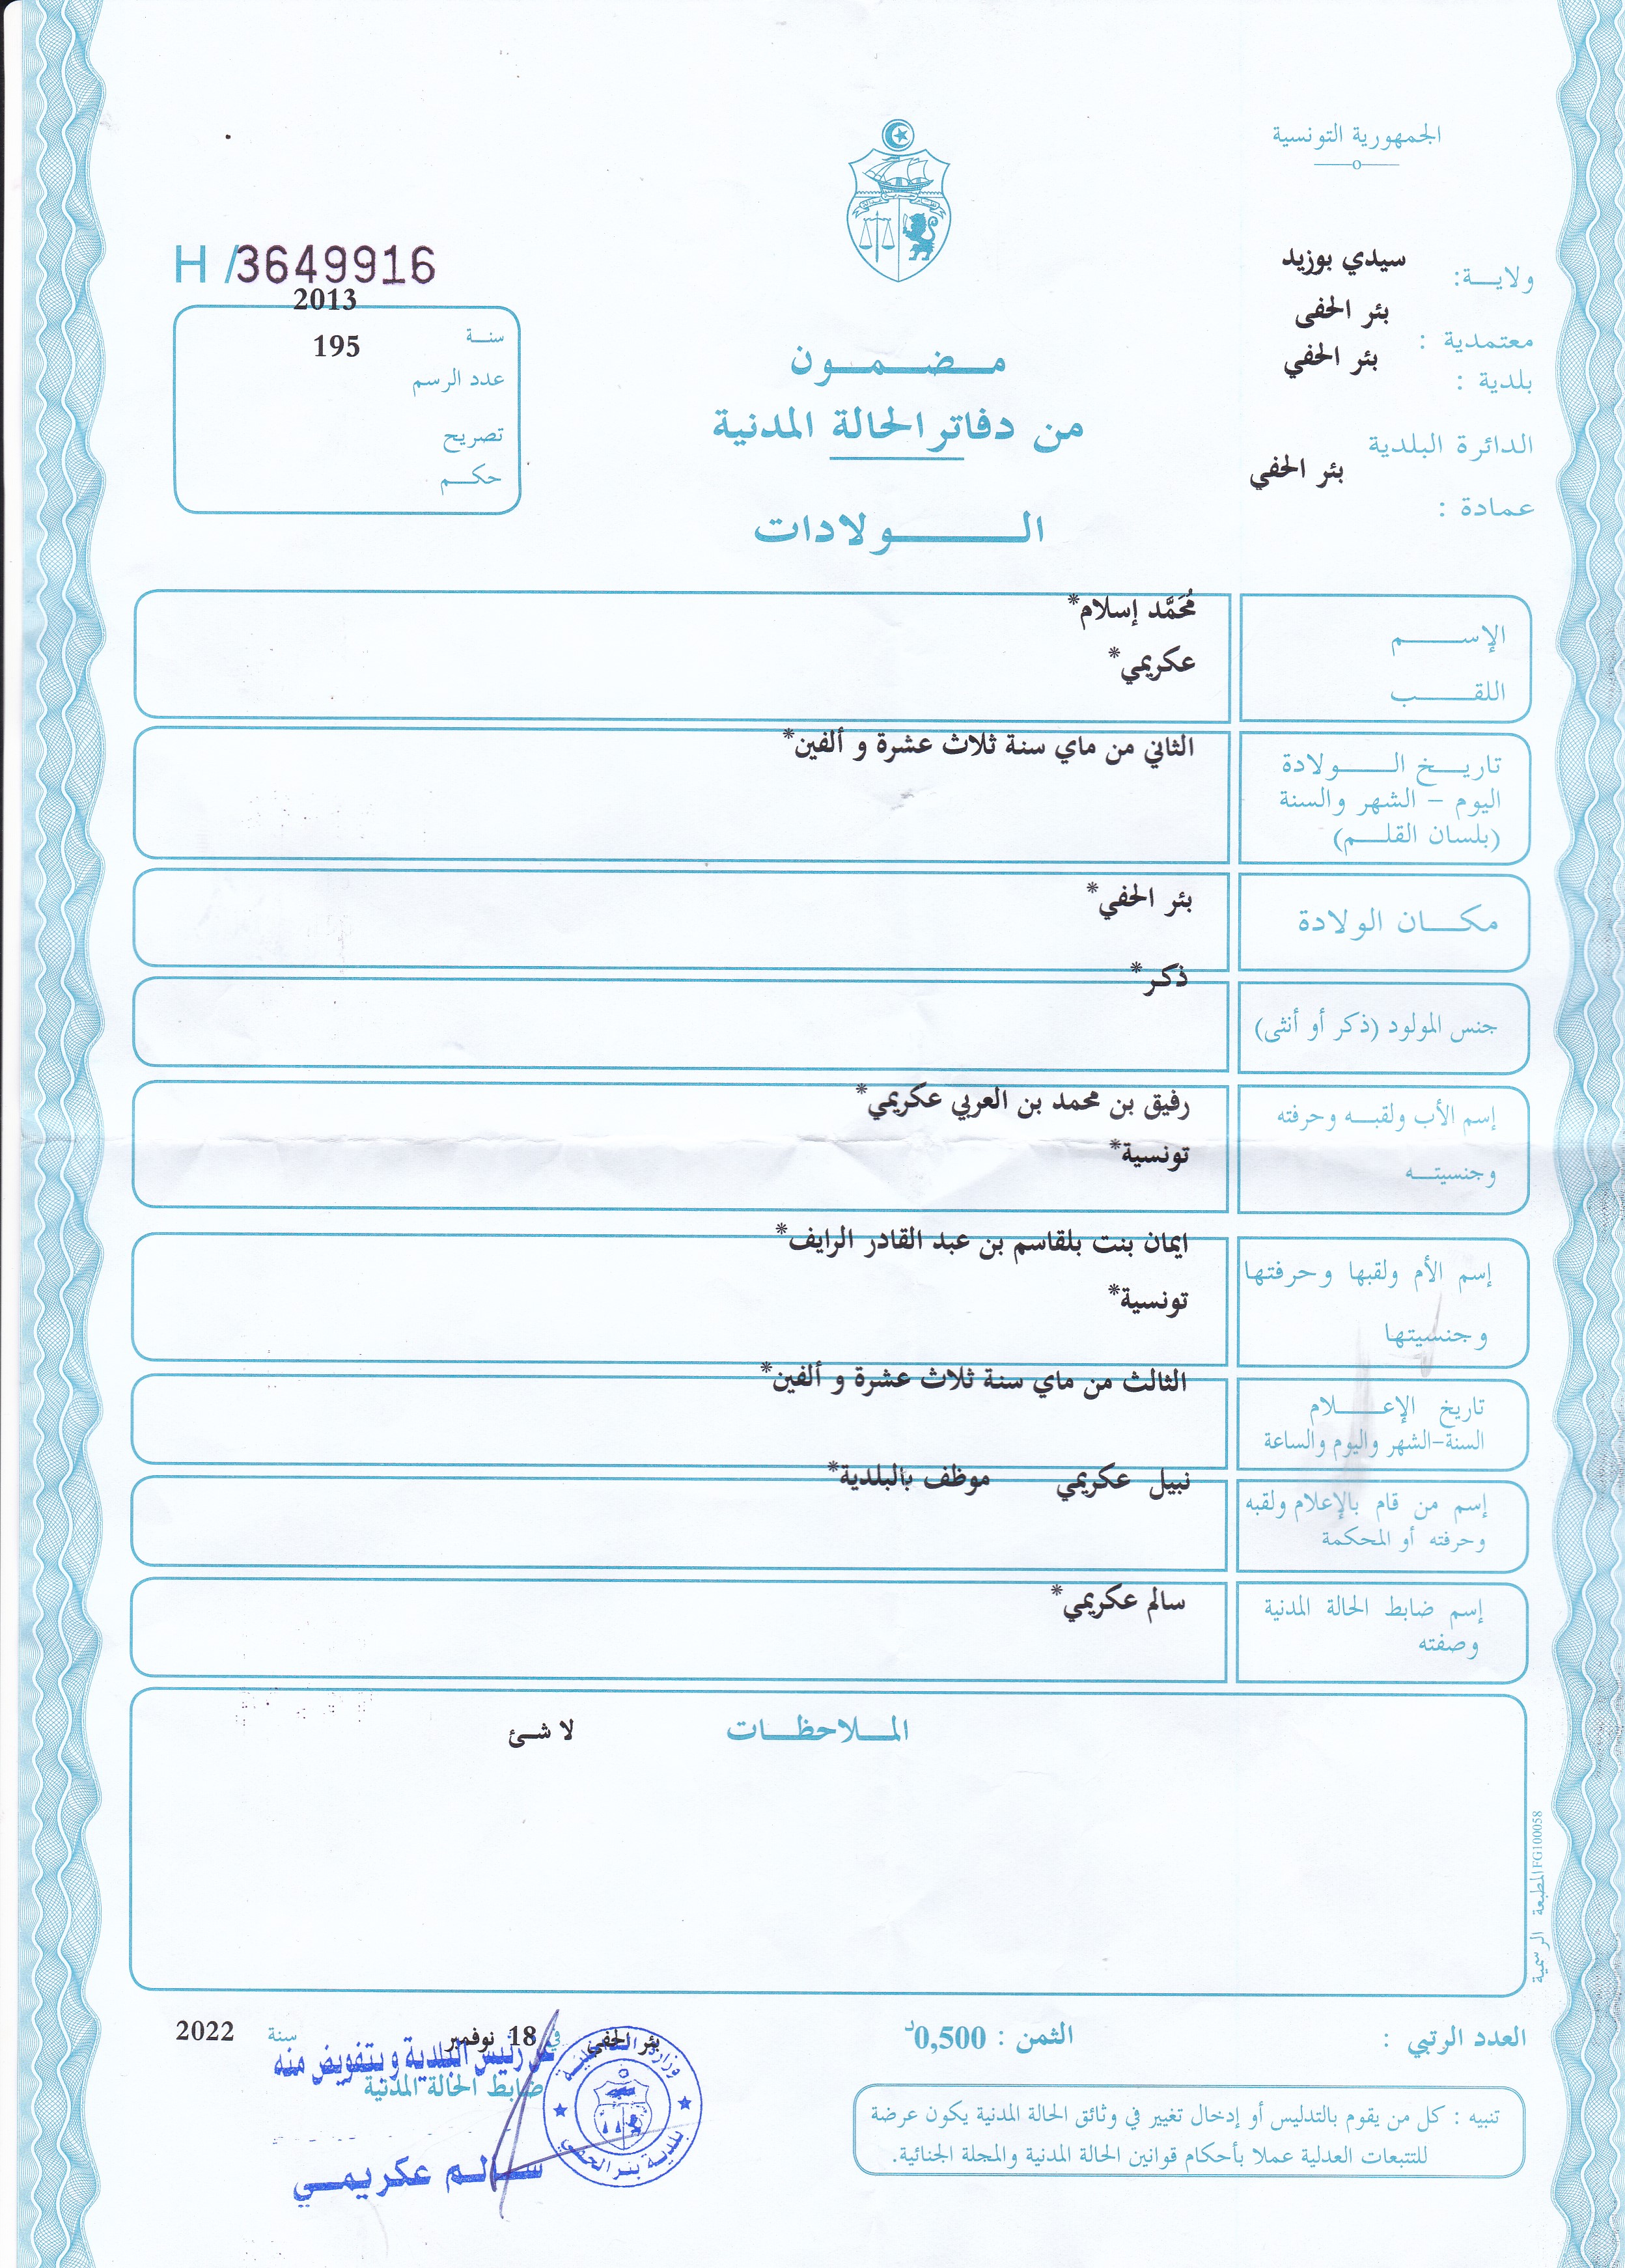 الجمهورية التونسية
ولايـــة: سيدي بوزيد
معتمدية : بئر الحفى
بلدية : بئر الحفي
الدائرة البلدية
بئر الحفي
عمادة :
H /3649916
2013
سنــة
195
عدد الرسم
تصريح
حكــم
مــضــمــون
من دفاتر الحالة المدنية
الــــولادات
الإســـــم
مُحَمَّد إسلام*
اللقـــــب
عكريمي*
تاريـــخ الــــولادة
اليوم – الشهر والسنة
(بلسان القلـــم)
الثاني من ماي سنة ثلاث عشرة و ألفين*
مكـــان الولادة
بئر الحفي*
جنس المولود (ذكر أو أنثى)
ذكر*
إسم الأب ولقبـــه وحرفته
وجنسيتـــه
رفيق بن محمد بن العربي عكريمي*
تونسية*
إسم الأم ولقبها وحرفتها
وجنسيتها
ايمان بنت بلقاسم بن عبد القادر الرايف*
تونسية*
تاريخ الإعــــلام
السنة-الشهر واليوم والساعة
الثالث من ماي سنة ثلاث عشرة و ألفين*
إسم من قام بالإعلام ولقبه
وحرفته أو المحكمة
نبيل عكريمي موظف بالبلدية*
إسم ضابط الحالة المدنية
وصفته
سالم عكريمي*
المــلاحظــات
لا شئ
المطبعة الرسمية FG100058
العدد الرتبي :
الثمن : 0,500د
بئر الحفي في 18 نوفمبر سنة 2022
عن رئيس البلدية و بتفويض منه
ضابط الحالة المدنية
ســالــم عكريمــي
وزارة الداخلية
بلدية بئر الحفي
تنبيه : كل من يقوم بالتدليس أو إدخال تغيير في وثائق الحالة المدنية يكون عرضة
للتتبعات العدلية عملا بأحكام قوانين الحالة المدنية والمجلة الجنائية.